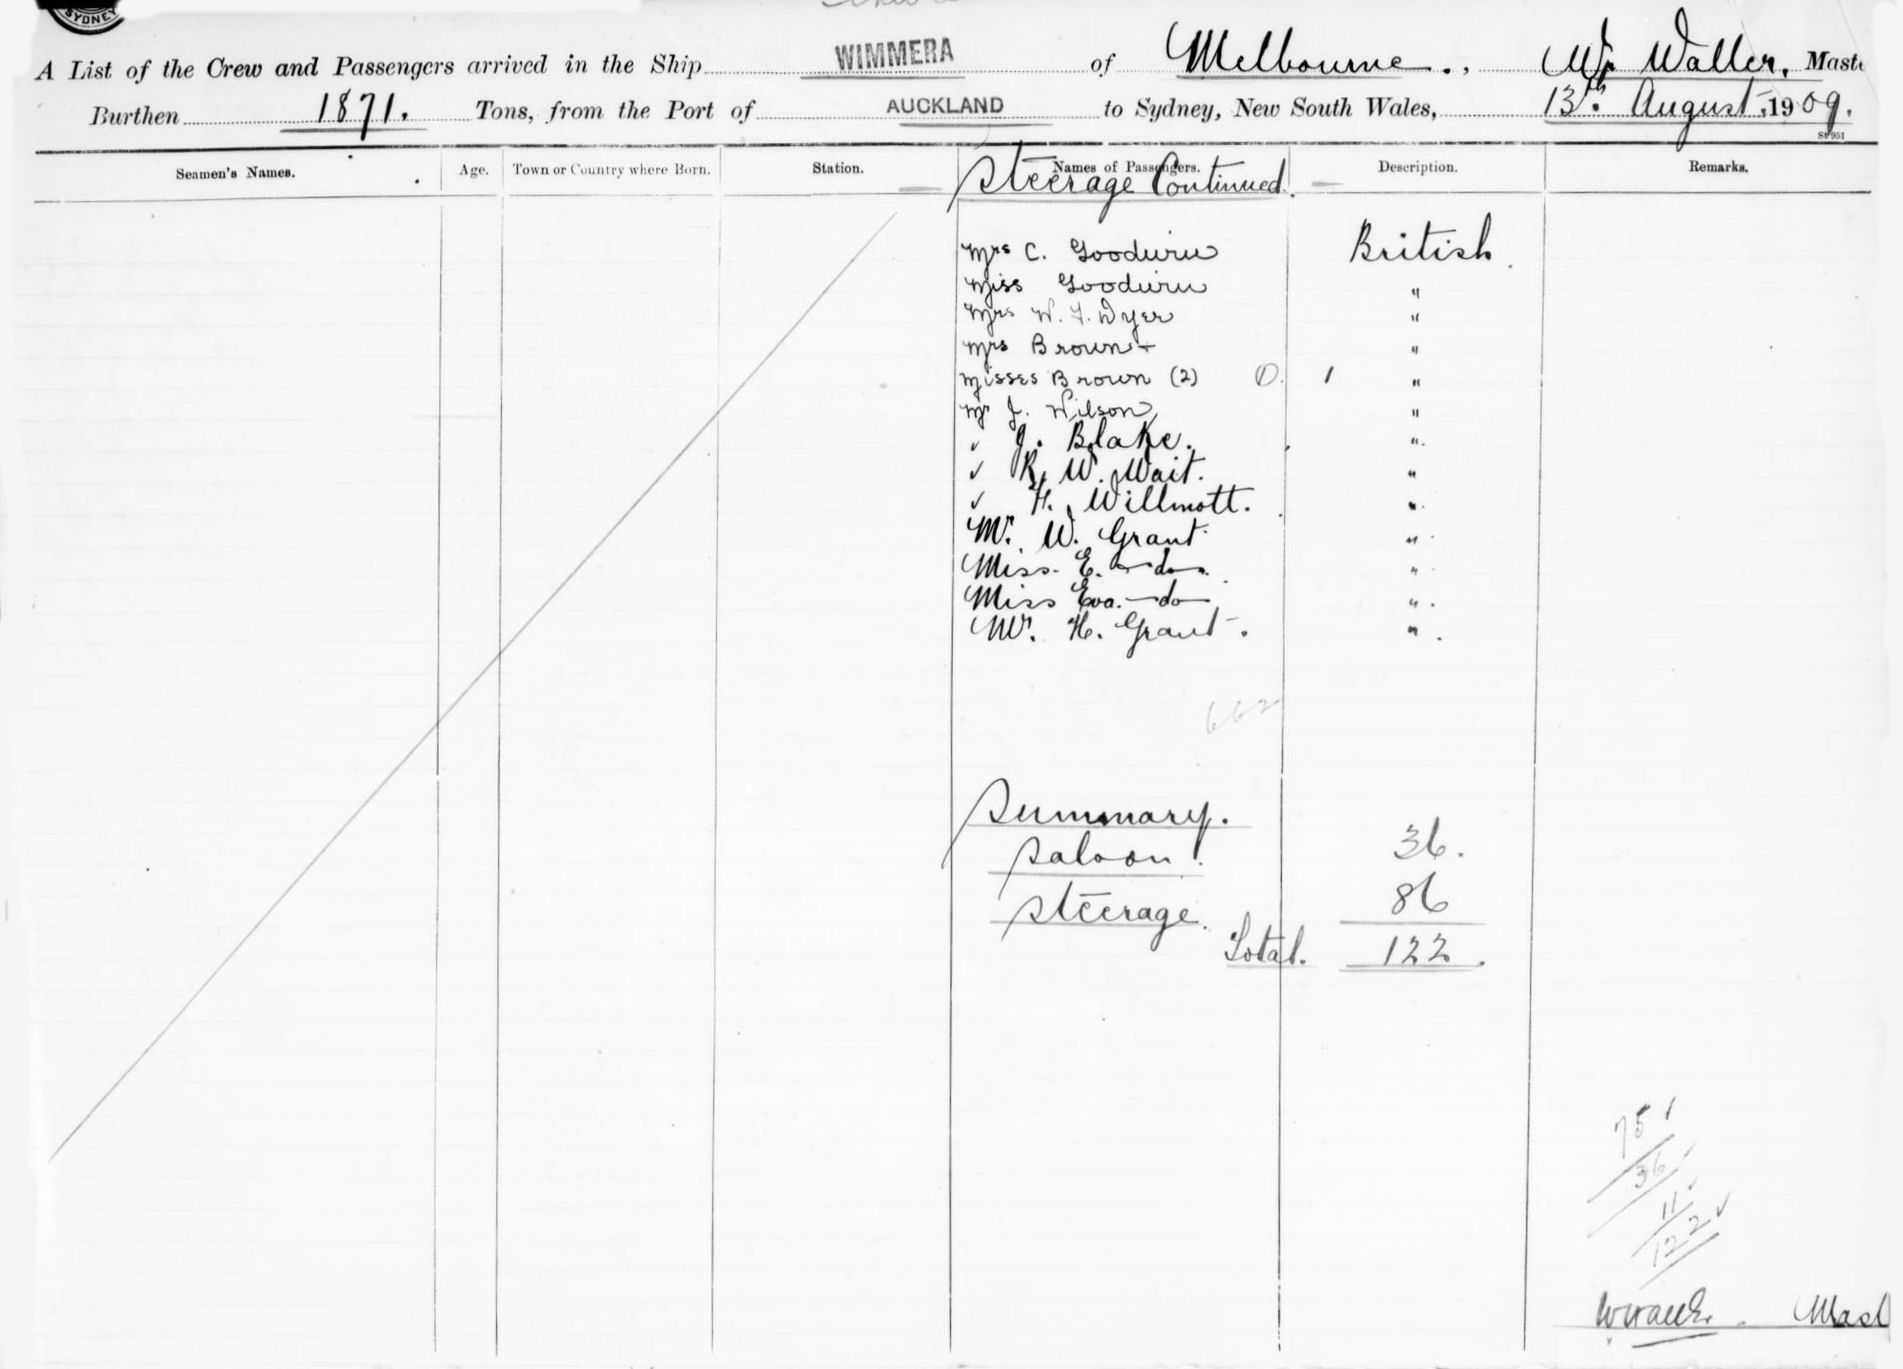 SYDNEY
A List of the Crew and Passengers arrived in the Ship WIMMERA of Melbourne., W. Waller, Maste
Burthen 1871. Tons, from the Port of AUCKLAND to Sydney, New South Wales, 13th. August 1909.
St 951
Seamen's Names. Age. Town or Country where Born. Station. Names of Passengers. Description. Remarks.
Steerage Continued.
Mrs C. Goodwin British.
Miss Goodwin "
Mrs W. F. Dyer "
Mrs Brown "
Misses Brown (2) 1 "
Mr J. Wilson "
" J. Blake. "
" R. W. Wait. "
" H. Willmott. "
Mr. W. Grant "
Miss E. do "
Miss Eva. do "
Mr. H. Grant. "
662
Summary.
Saloon. 36.
Steerage. 86
Total. 122.
75
36
11
122
Mast